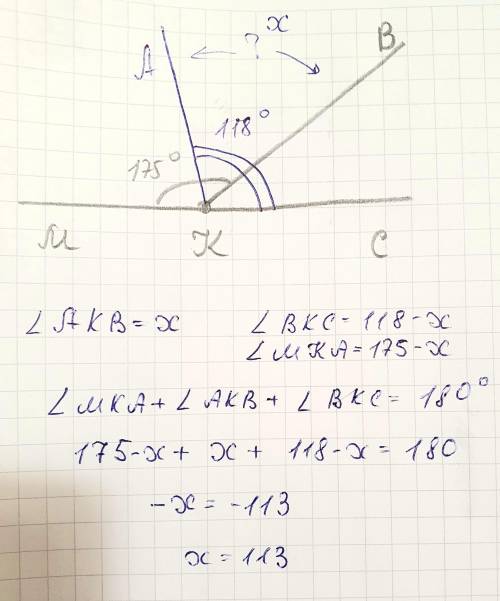 x
A ? B
118°
175°
M K C
∠ AKB = x ∠ BKC = 118 - x
∠ MKA = 175 - x
∠ MKA + ∠ AKB + ∠ BKC = 180°
175 - x + x + 118 - x = 180
-x = -113
x = 113